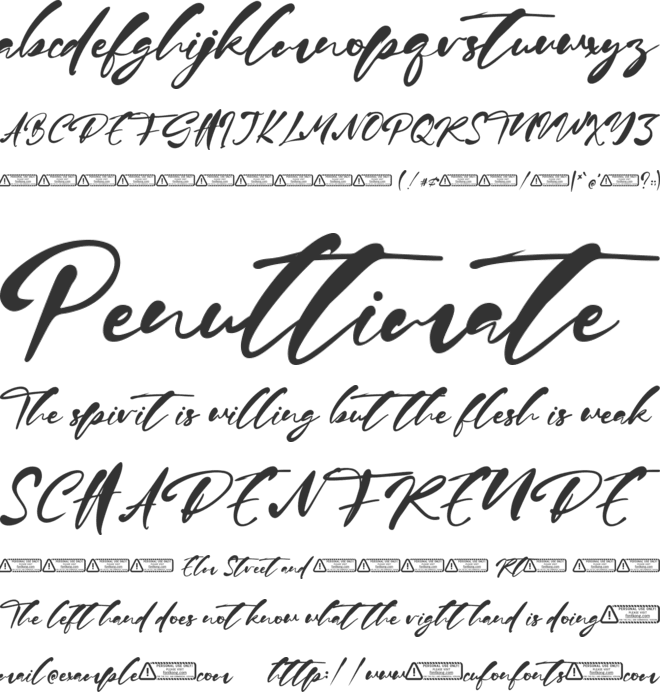 abcdefghijklmnopqrstuvwxyz
ABCDEFGHIJKLMNOPQRSTUVWXYZ
(/#$ / |*"@' ?::)
Penultimate
The spirit is willing but the flesh is weak
SCHADENFREUDE
Elm Street and Rd
The left hand does not know what the right hand is doing
mail@example com http:// www cufonfonts com